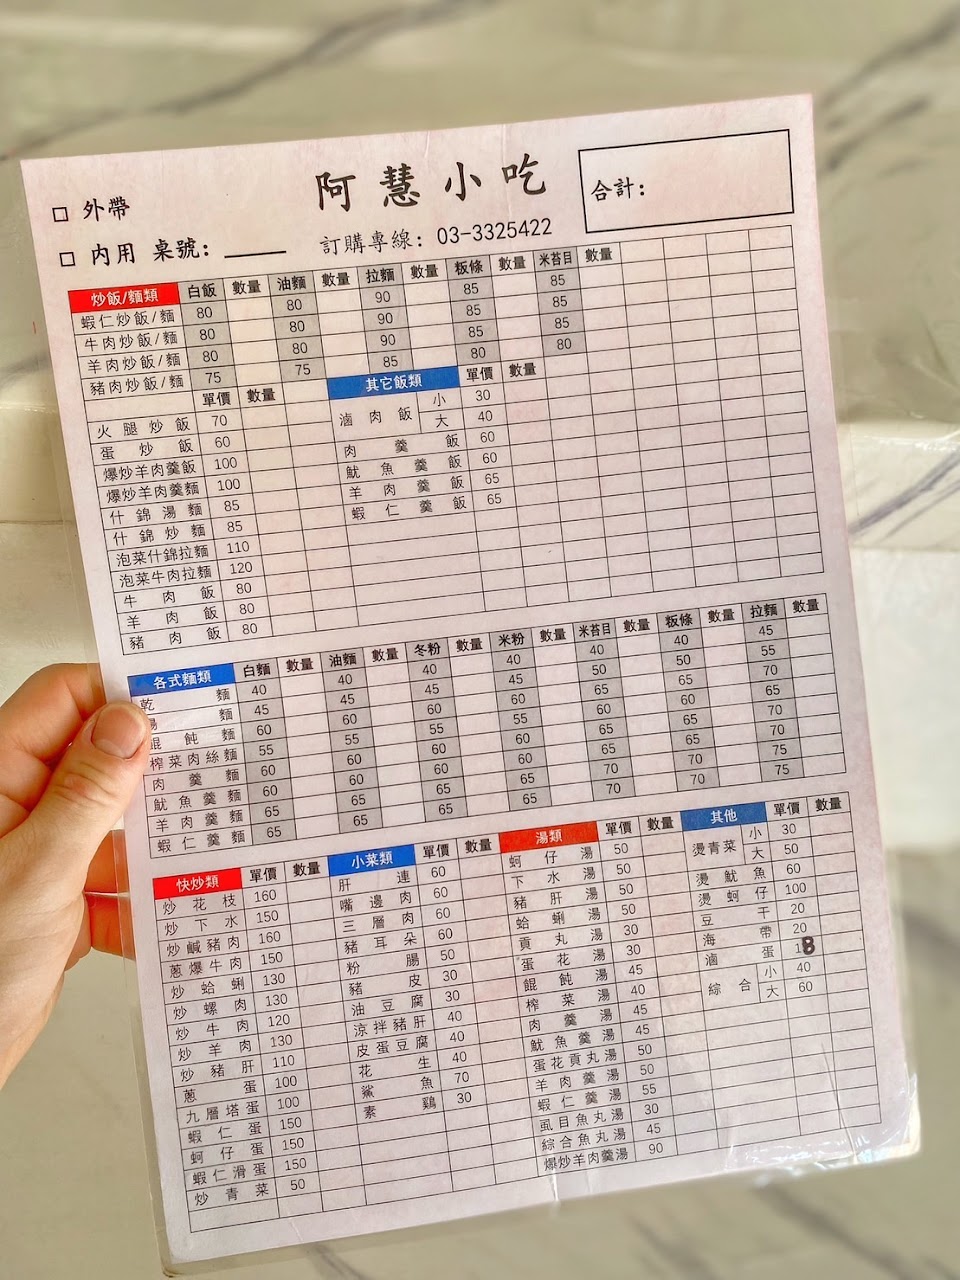 阿慧小吃
□ 外帶
合計:
□ 內用 桌號: ____
訂購專線: 03-3325422
炒飯/麵類 白飯 數量 油麵 數量 拉麵 數量 粄條 數量 米苔目 數量
蝦仁炒飯/麵 80 80 90 85 85
牛肉炒飯/麵 80 80 90 85 85
羊肉炒飯/麵 80 80 90 85 85
豬肉炒飯/麵 75 75 85 80 80
單價 數量
火腿炒飯 70
蛋炒飯 60
爆炒羊肉羹飯 100
爆炒羊肉羹麵 100
什錦湯麵 85
什錦炒麵 85
泡菜什錦拉麵 110
泡菜牛肉拉麵 120
牛肉飯 80
羊肉飯 80
豬肉飯 80
其它飯類 單價 數量
滷肉飯 小 30
大 40
肉羹飯 60
魷魚羹飯 60
羊肉羹飯 65
蝦仁羹飯 65
各式麵類 白麵 數量 油麵 數量 冬粉 數量 米粉 數量 米苔目 數量 粄條 數量 拉麵 數量
乾麵 40 40 40 40 40 40 45
湯麵 45 45 45 45 50 50 55
餛飩麵 60 60 60 60 65 65 70
榨菜肉絲麵 55 55 55 55 60 60 65
肉羹麵 60 60 60 60 65 65 70
魷魚羹麵 60 60 60 60 65 65 70
羊肉羹麵 65 65 65 65 70 70 75
蝦仁羹麵 65 65 65 65 70 70 75
快炒類 單價 數量
炒花枝 160
炒下水 150
炒鹹豬肉 160
蔥爆牛肉 150
炒蛤蜊 130
炒螺肉 130
炒牛肉 120
炒羊肉 130
炒豬肝 110
蔥蛋 100
九層塔蛋 100
蝦仁蛋 150
蚵仔蛋 150
蝦仁滑蛋 150
炒青菜 50
小菜類 單價 數量
肝連 60
嘴邊肉 60
三層肉 60
豬耳朵 60
粉腸 50
豬皮 30
油豆腐 30
涼拌豬肝 40
皮蛋豆腐 40
花生 40
鯊魚 70
素雞 30
湯類 單價 數量
蚵仔湯 50
下水湯 50
豬肝湯 50
蛤蜊湯 50
頁丸湯 30
蛋花湯 30
餛飩湯 45
榨菜湯 40
肉羹湯 45
魷魚羹湯 45
蛋花頁丸湯 50
羊肉羹湯 50
蝦仁羹湯 55
虱目魚丸湯 30
綜合魚丸湯 45
爆炒羊肉羹湯 90
其他 單價 數量
燙青菜 小 30
大 50
燙魷魚 60
燙蚵仔 100
豆干 20
海帶 20
滷蛋 18
綜合 小 40
大 60